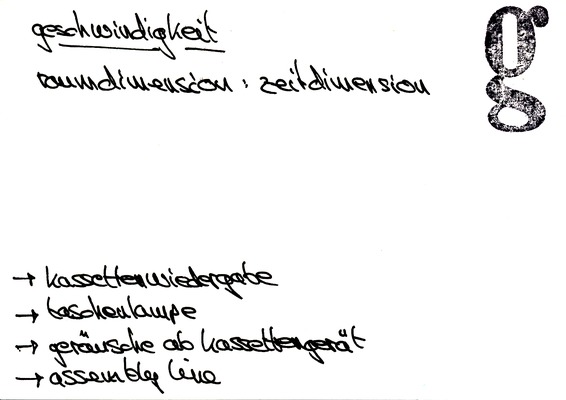 geschwindigkeit
g
raumdimension : zeitdimension
→ kassettenwiedergabe
→ taschenlampe
→ geräusche ab kassettengerät
→ assembly line